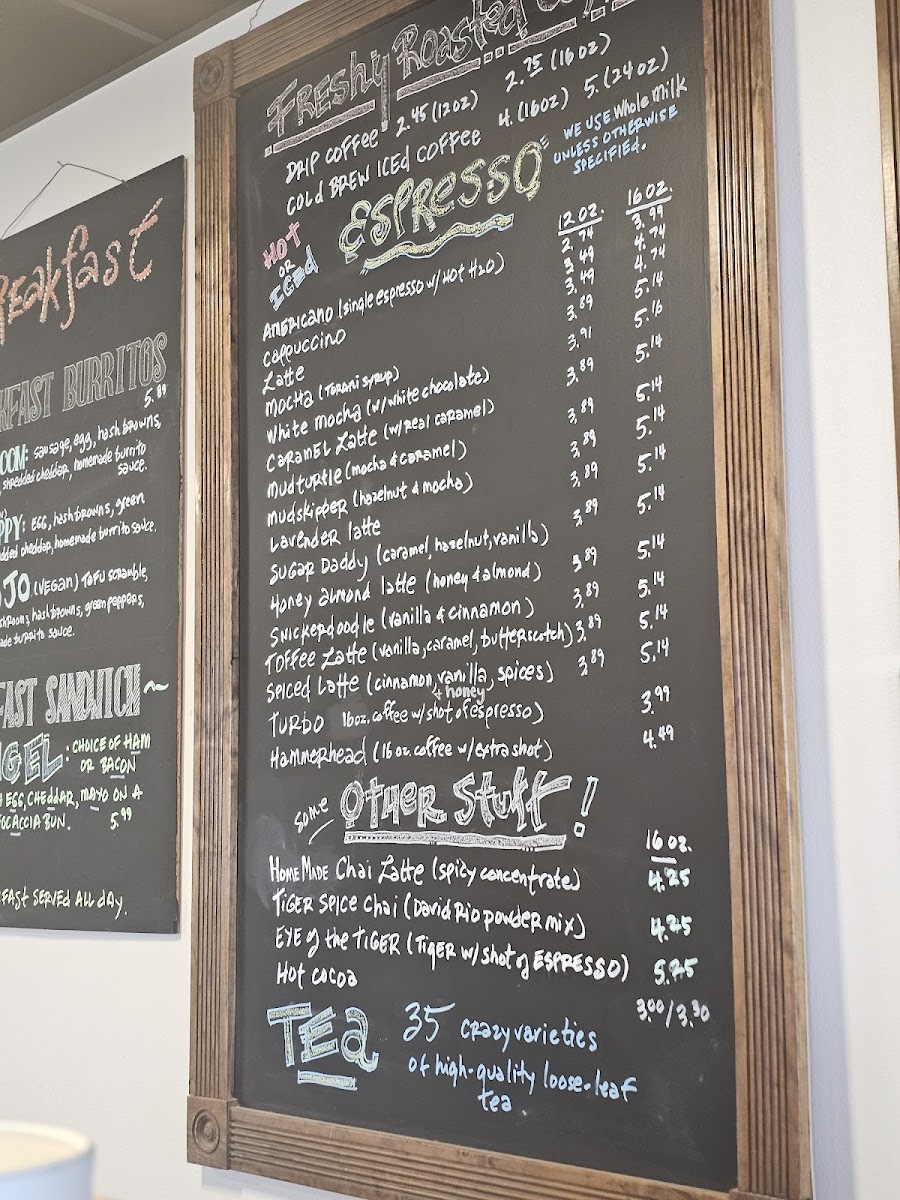 reakfast
FAST BURRITOS
5.89
OOM: sausage, egg, hash browns,
shredded cheddar, homemade burrito
sauce.
PPY: EGG, hash browns, green
dded cheddar, homemade burrito sauce.
JO (VEGAN) TOFU scramble,
shrooms, hash browns, green peppers,
ade burrito sauce.
FAST SANDWICH ~
GEL: CHOICE OF HAM
OR BACON
EGG, CHEDDAR, MAYO ON A
FOCACCIA BUN. 5.99
FAST SERVED ALL DAY.
FRESHLY ROASTED
DRIP COFFEE 2.45 (12 oz) 2.75 (16 oz)
COLD BREW ICED COFFEE 4. (16oz) 5. (24 oz)
ESPRESSO
WE USE Whole Milk
UNLESS OTHERWISE
SPECIFIED.
HOT
OR
ICED
12 OZ. 16 OZ.
AMERICANO (single espresso w/ HOT H2O) 2.74 3.99
Cappuccino 3.49 4.74
Latte 3.49 4.74
Mocha (TORANI SYRUP) 3.89 5.14
White mocha (w/ white chocolate) 3.91 5.16
CARAMEL Latte (w/ real caramel) 3.89 5.14
Mudturtle (mocha & caramel) 3.89 5.14
Mudskipper (hazelnut & mocha) 3.89 5.14
Lavender latte 3.89 5.14
SUGAR DADDY (caramel, hazelnut, vanilla) 3.89 5.14
Honey almond latte (honey & almond) 3.89 5.14
Snickerdoodle (vanilla & cinnamon) 3.89 5.14
TOFFEE Latte (vanilla, caramel, butterscotch) 3.89 5.14
Spiced Latte (cinnamon, vanilla, spices) 3.89 5.14
+ honey
TURBO 16oz. coffee w/ shot of espresso) 3.99
Hammerhead (16 oz. coffee w/ extra shot) 4.49
some OTHER Stuff!
16 oz.
HOMEMADE Chai Latte (spicy concentrate) 4.25
TIGER Spice Chai (David Rio powder mix) 4.25
EYE of the TIGER (TIGER w/ shot of ESPRESSO) 5.25
Hot cocoa 3.00/3.30
TEA 35 crazy varieties
of high-quality loose-leaf
tea